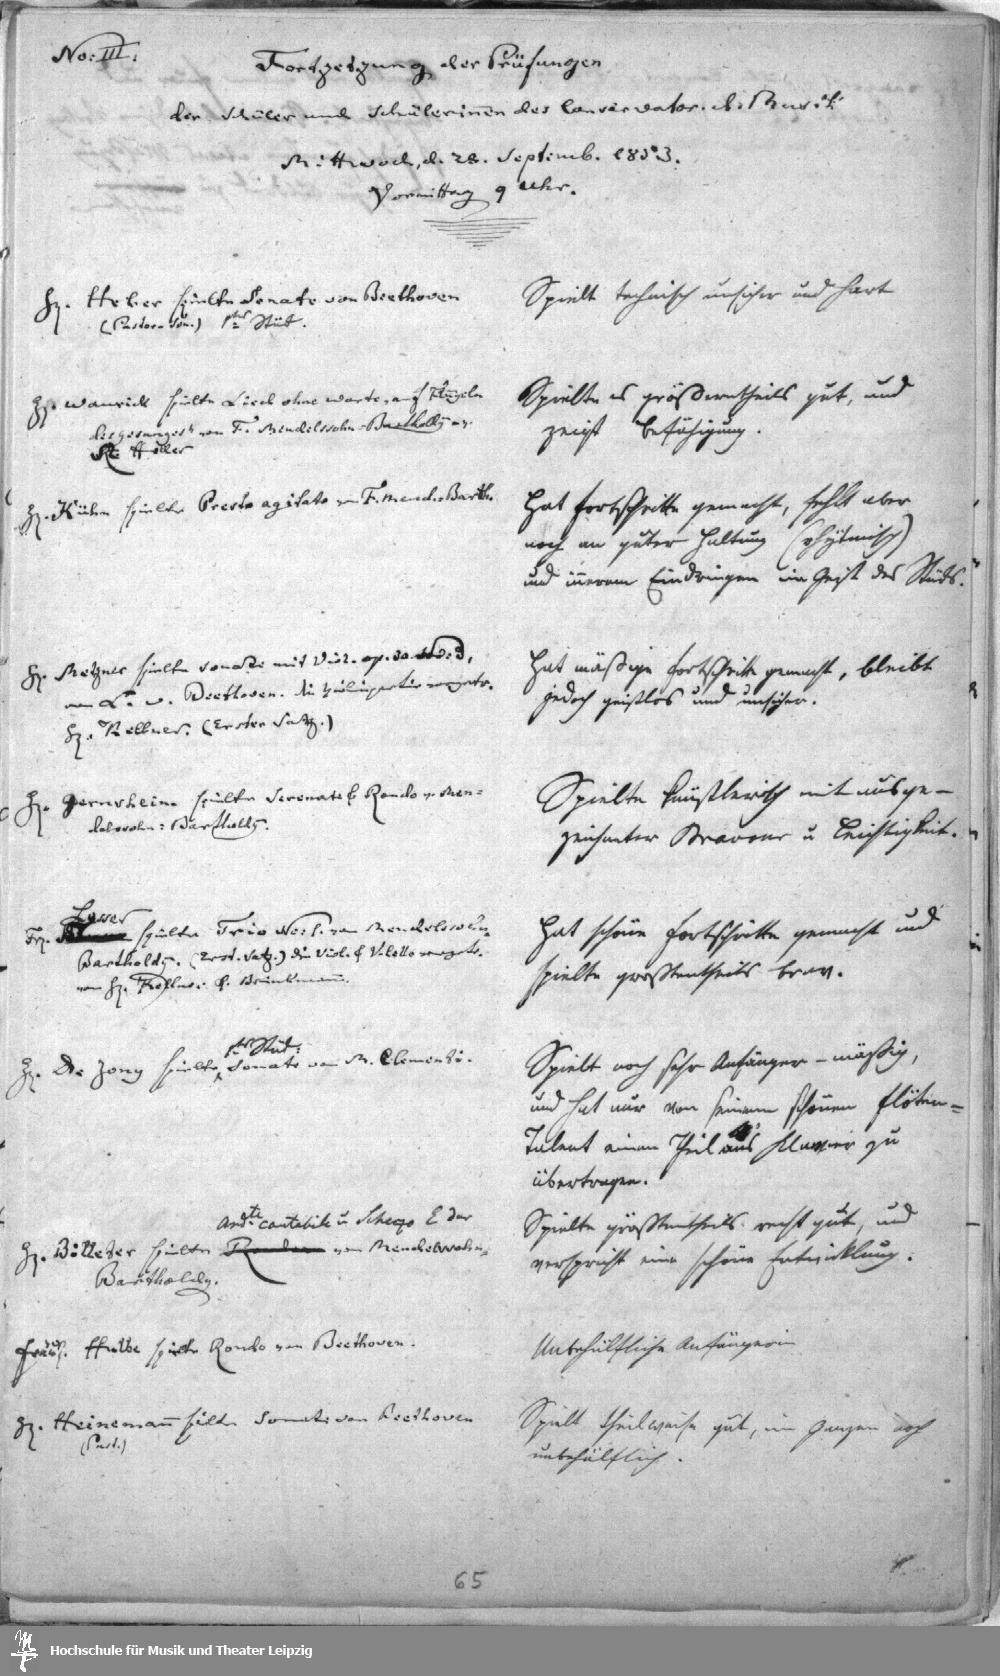 No: III.
Fortsetzung der Prüfungen
der Schüler und Schülerinen des Conservator. d. Musik
Mittwoch, d. 28. Septemb. 1853.
Vormittag 9 Uhr.
H. Heber spielte Sonate von Beethoven
(Pastor. Son.) 1tes Stück.
Spielt technisch unsicher und hart
H. spielte Lied ohne Worte, auf Flügeln
des Gesanges v. von F. Mendelssohn-Bartholdy
St. Heller
Spielte es größtentheils gut, und
zeigt Befähigung.
H. Kühn spielte Presto agitato von F. Mend. Barth.
Hat Fortschritte gemacht, fehlt aber
noch an guter Haltung (rhytmisch)
und innerem Eindringen im Geist des Stücks.
H. Metzner spielte Sonate mit Viol. op. 30
von L. v. Beethoven. die
H. Röllner. (Erster Satz.)
Hat mäßige Fortschritte gemacht, bleibt
jedoch geistlos und unsicher.
H. Gernsheim. spielte Serenate & Rondo v. Men=
delssohn=Bartholdy.
Spielte künstlerisch mit ausge-
zeichneter Bravour u Leichtigkeit.
spielte Trio No. 1. von Mendelssohn
Bartholdy. (Erst. Satz.) die Viol. & V.lcello
von H. Röllner & Brinkmann.
Hat schöne Fortschritte gemacht und
spielte großtentheils brav.
H. De Jong spielte 1tes Stück: Sonate von M. Clementi.
Spielt noch sehr Anfänger-mäßig,
und hat nur von seinem schönen Flöten=
Talent einen Theil aufs Klavier zu
übertragen.
Andte cantabile u Scherzo E dur
H. Billeter spielte von Mendelssohn=
Bartholdy.
Spielte größtentheils recht gut, und
verspricht eine schöne Entwicklung.
Fräul. Hulbe spielte Rondo von Beethoven.
Unbehülfliche Anfängerin
H. Heinemann spielte Sonate von Beethoven
(Past.)
Spielt theilweise gut, im Ganzen noch
unbehülflich.
65
Hochschule für Musik und Theater Leipzig